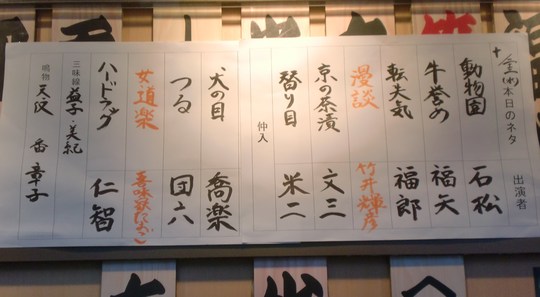 十金(水)本日のネタ 出演者
動物園 石松
牛誉め 福矢
転失気 福郎
漫談 竹井輝彦
京の茶漬 文三
替り目 米二
仲入
犬の目 喬楽
つる 団六
女道楽
ハードラック 仁智
三味線 益子・美紀
鳴物 天使 岳 章子